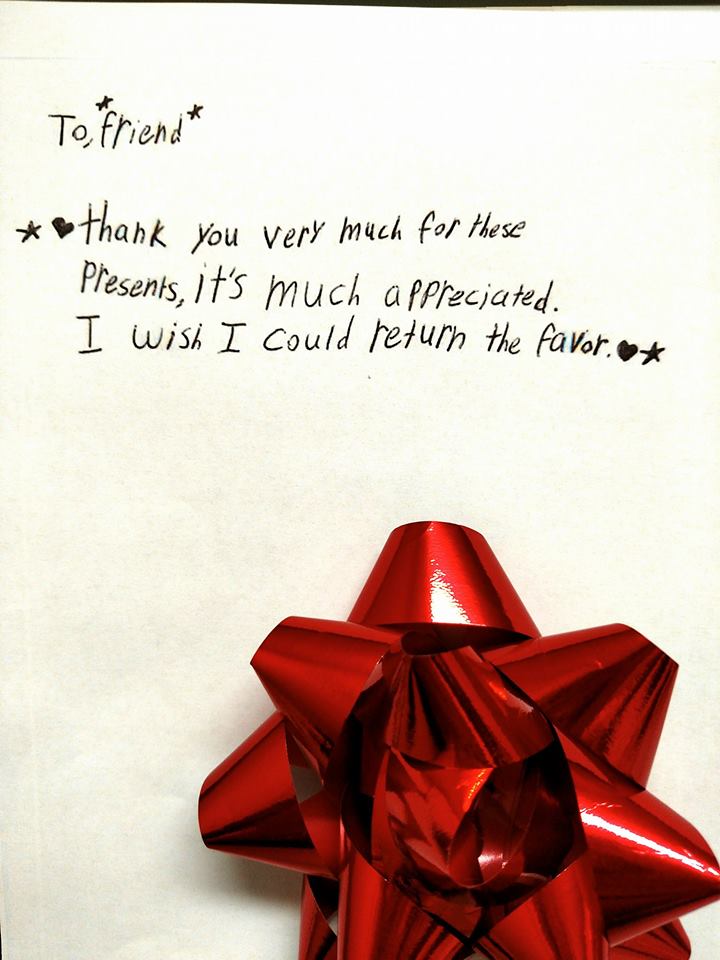 To, *friend*
★♥thank you very much for these
presents, it's much appreciated.
I wish I could return the favor.♥★